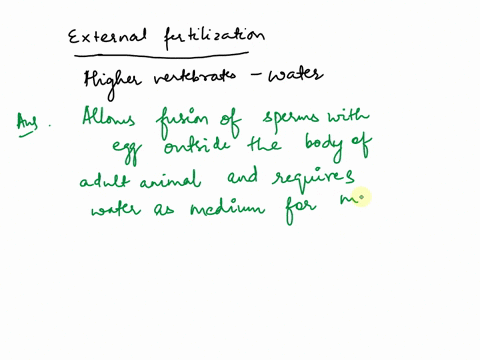 External fertilization
Higher vertebrates - water
Ans. Allows fusion of sperms with
egg outside the body of
adult animal and requires
water as medium for m